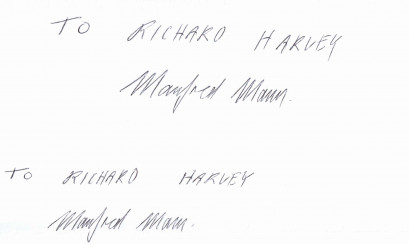 TO RICHARD HARVEY
Manfred Mann.
TO RICHARD HARVEY
Manfred Mann.